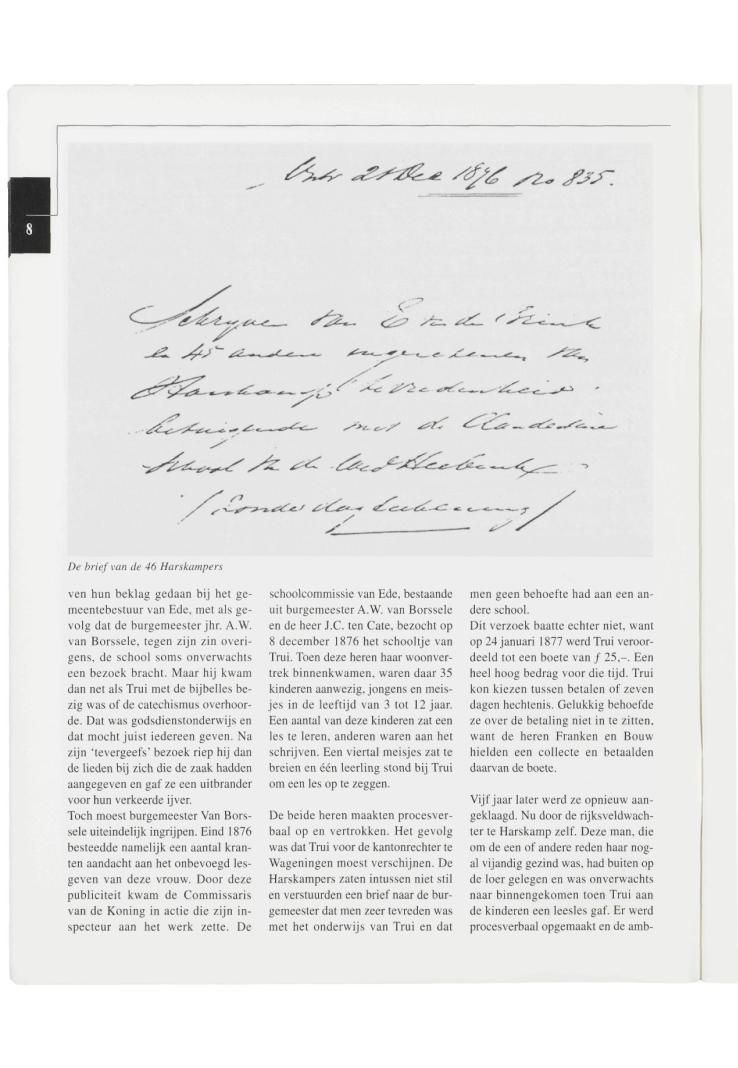 Ontv 21 Dec 1876 No 835.
8
Schryven van E v. de Brink
en 45 andere ingezetenen van
Harskamp tevredenheid
betuigende met de Clandestine
school v. de
(zonder dagteekening)
De brief van de 46 Harskampers
ven hun beklag gedaan bij het ge-
meentebestuur van Ede, met als ge-
volg dat de burgemeester jhr. A.W.
van Borssele, tegen zijn zin overi-
gens, de school soms onverwachts
een bezoek bracht. Maar hij kwam
dan net als Trui met de bijbelles be-
zig was of de catechismus overhoor-
de. Dat was godsdienstonderwijs en
dat mocht juist iedereen geven. Na
zijn ‘tevergeefs’ bezoek riep hij dan
de lieden bij zich die de zaak hadden
aangegeven en gaf ze een uitbrander
voor hun verkeerde ijver.
Toch moest burgemeester Van Bors-
sele uiteindelijk ingrijpen. Eind 1876
besteedde namelijk een aantal kran-
ten aandacht aan het onbevoegd les-
geven van deze vrouw. Door deze
publiciteit kwam de Commissaris
van de Koning in actie die zijn in-
specteur aan het werk zette. De
schoolcommissie van Ede, bestaande
uit burgemeester A.W. van Borssele
en de heer J.C. ten Cate, bezocht op
8 december 1876 het schooltje van
Trui. Toen deze heren haar woonver-
trek binnenkwamen, waren daar 35
kinderen aanwezig, jongens en meis-
jes in de leeftijd van 3 tot 12 jaar.
Een aantal van deze kinderen zat een
les te leren, anderen waren aan het
schrijven. Een viertal meisjes zat te
breien en één leerling stond bij Trui
om een les op te zeggen.
De beide heren maakten procesver-
baal op en vertrokken. Het gevolg
was dat Trui voor de kantonrechter te
Wageningen moest verschijnen. De
Harskampers zaten intussen niet stil
en verstuurden een brief naar de bur-
gemeester dat men zeer tevreden was
met het onderwijs van Trui en dat
men geen behoefte had aan een an-
dere school.
Dit verzoek baatte echter niet, want
op 24 januari 1877 werd Trui veroor-
deeld tot een boete van ƒ 25,–. Een
heel hoog bedrag voor die tijd. Trui
kon kiezen tussen betalen of zeven
dagen hechtenis. Gelukkig behoefde
ze over de betaling niet in te zitten,
want de heren Franken en Bouw
hielden een collecte en betaalden
daarvan de boete.
Vijf jaar later werd ze opnieuw aan-
geklaagd. Nu door de rijksveldwach-
ter te Harskamp zelf. Deze man, die
om de een of andere reden haar nog-
al vijandig gezind was, had buiten op
de loer gelegen en was onverwachts
naar binnengekomen toen Trui aan
de kinderen een leesles gaf. Er werd
procesverbaal opgemaakt en de amb-